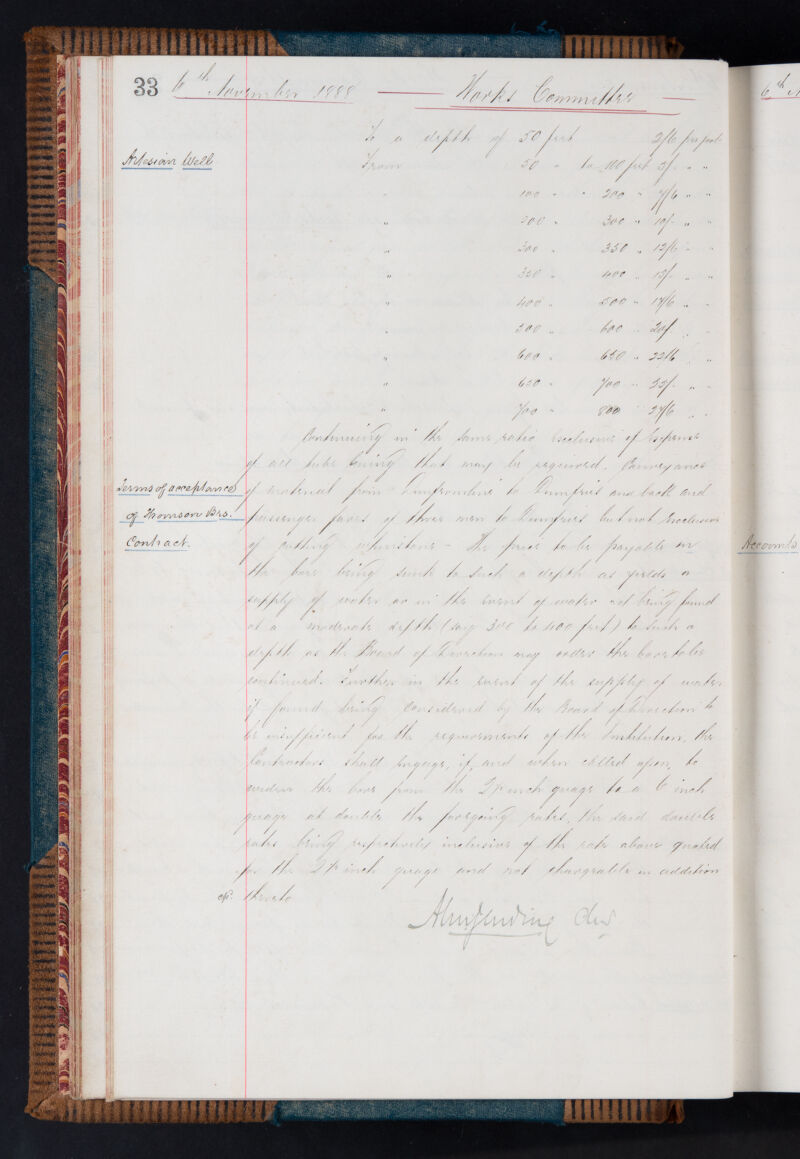 33 6th November 1888 Works Committee
6th
Artesian Well
To a depth of 50 feet 2/6 per foot
From 50 " to 100 feet 5/- " "
" 100 " " 200 " 7/6 " "
" 200 " 300 " 10/- " "
" 300 " 350 " 12/6 " "
" 350 " 400 " 15/- " "
" 400 " 500 " 17/6 " "
" 500 " 600 " 20/ " "
" 600 " 650 " 22/6 " "
" 650 " 700 " 25/- " "
" 700 " 800 " 27/6 " "
Continuing in the same ratio exclusive of Expense
of all tube lining that may be required. Conveyance
Terms of acceptance
of Thomson Bros.
Contract.
of material from Dunfermline to Dumfries and back and
passenger fares of three men to Dumfries but not exclusive
of cutting whinstone - The price to be payable on
the bore being sunk to such a depth as yields a
supply of water or in the event of water not being found
at a moderate depth (say 300 to 400 feet) to such a
depth as the Board of Direction may order the bore to be
continued. Further in the event of the supply of water
if found being considered by the Board of Direction to
be insufficient for the requirements of the Institution, the
Contractors shall engage, if, and when called upon, to
widen the bore from the inch guage to a 6 inch
guage at double the foregoing rates, the said double
rates being respectively inclusive of the rate above quoted
for the inch guage and not chargeable in addition
thereto
Accounts